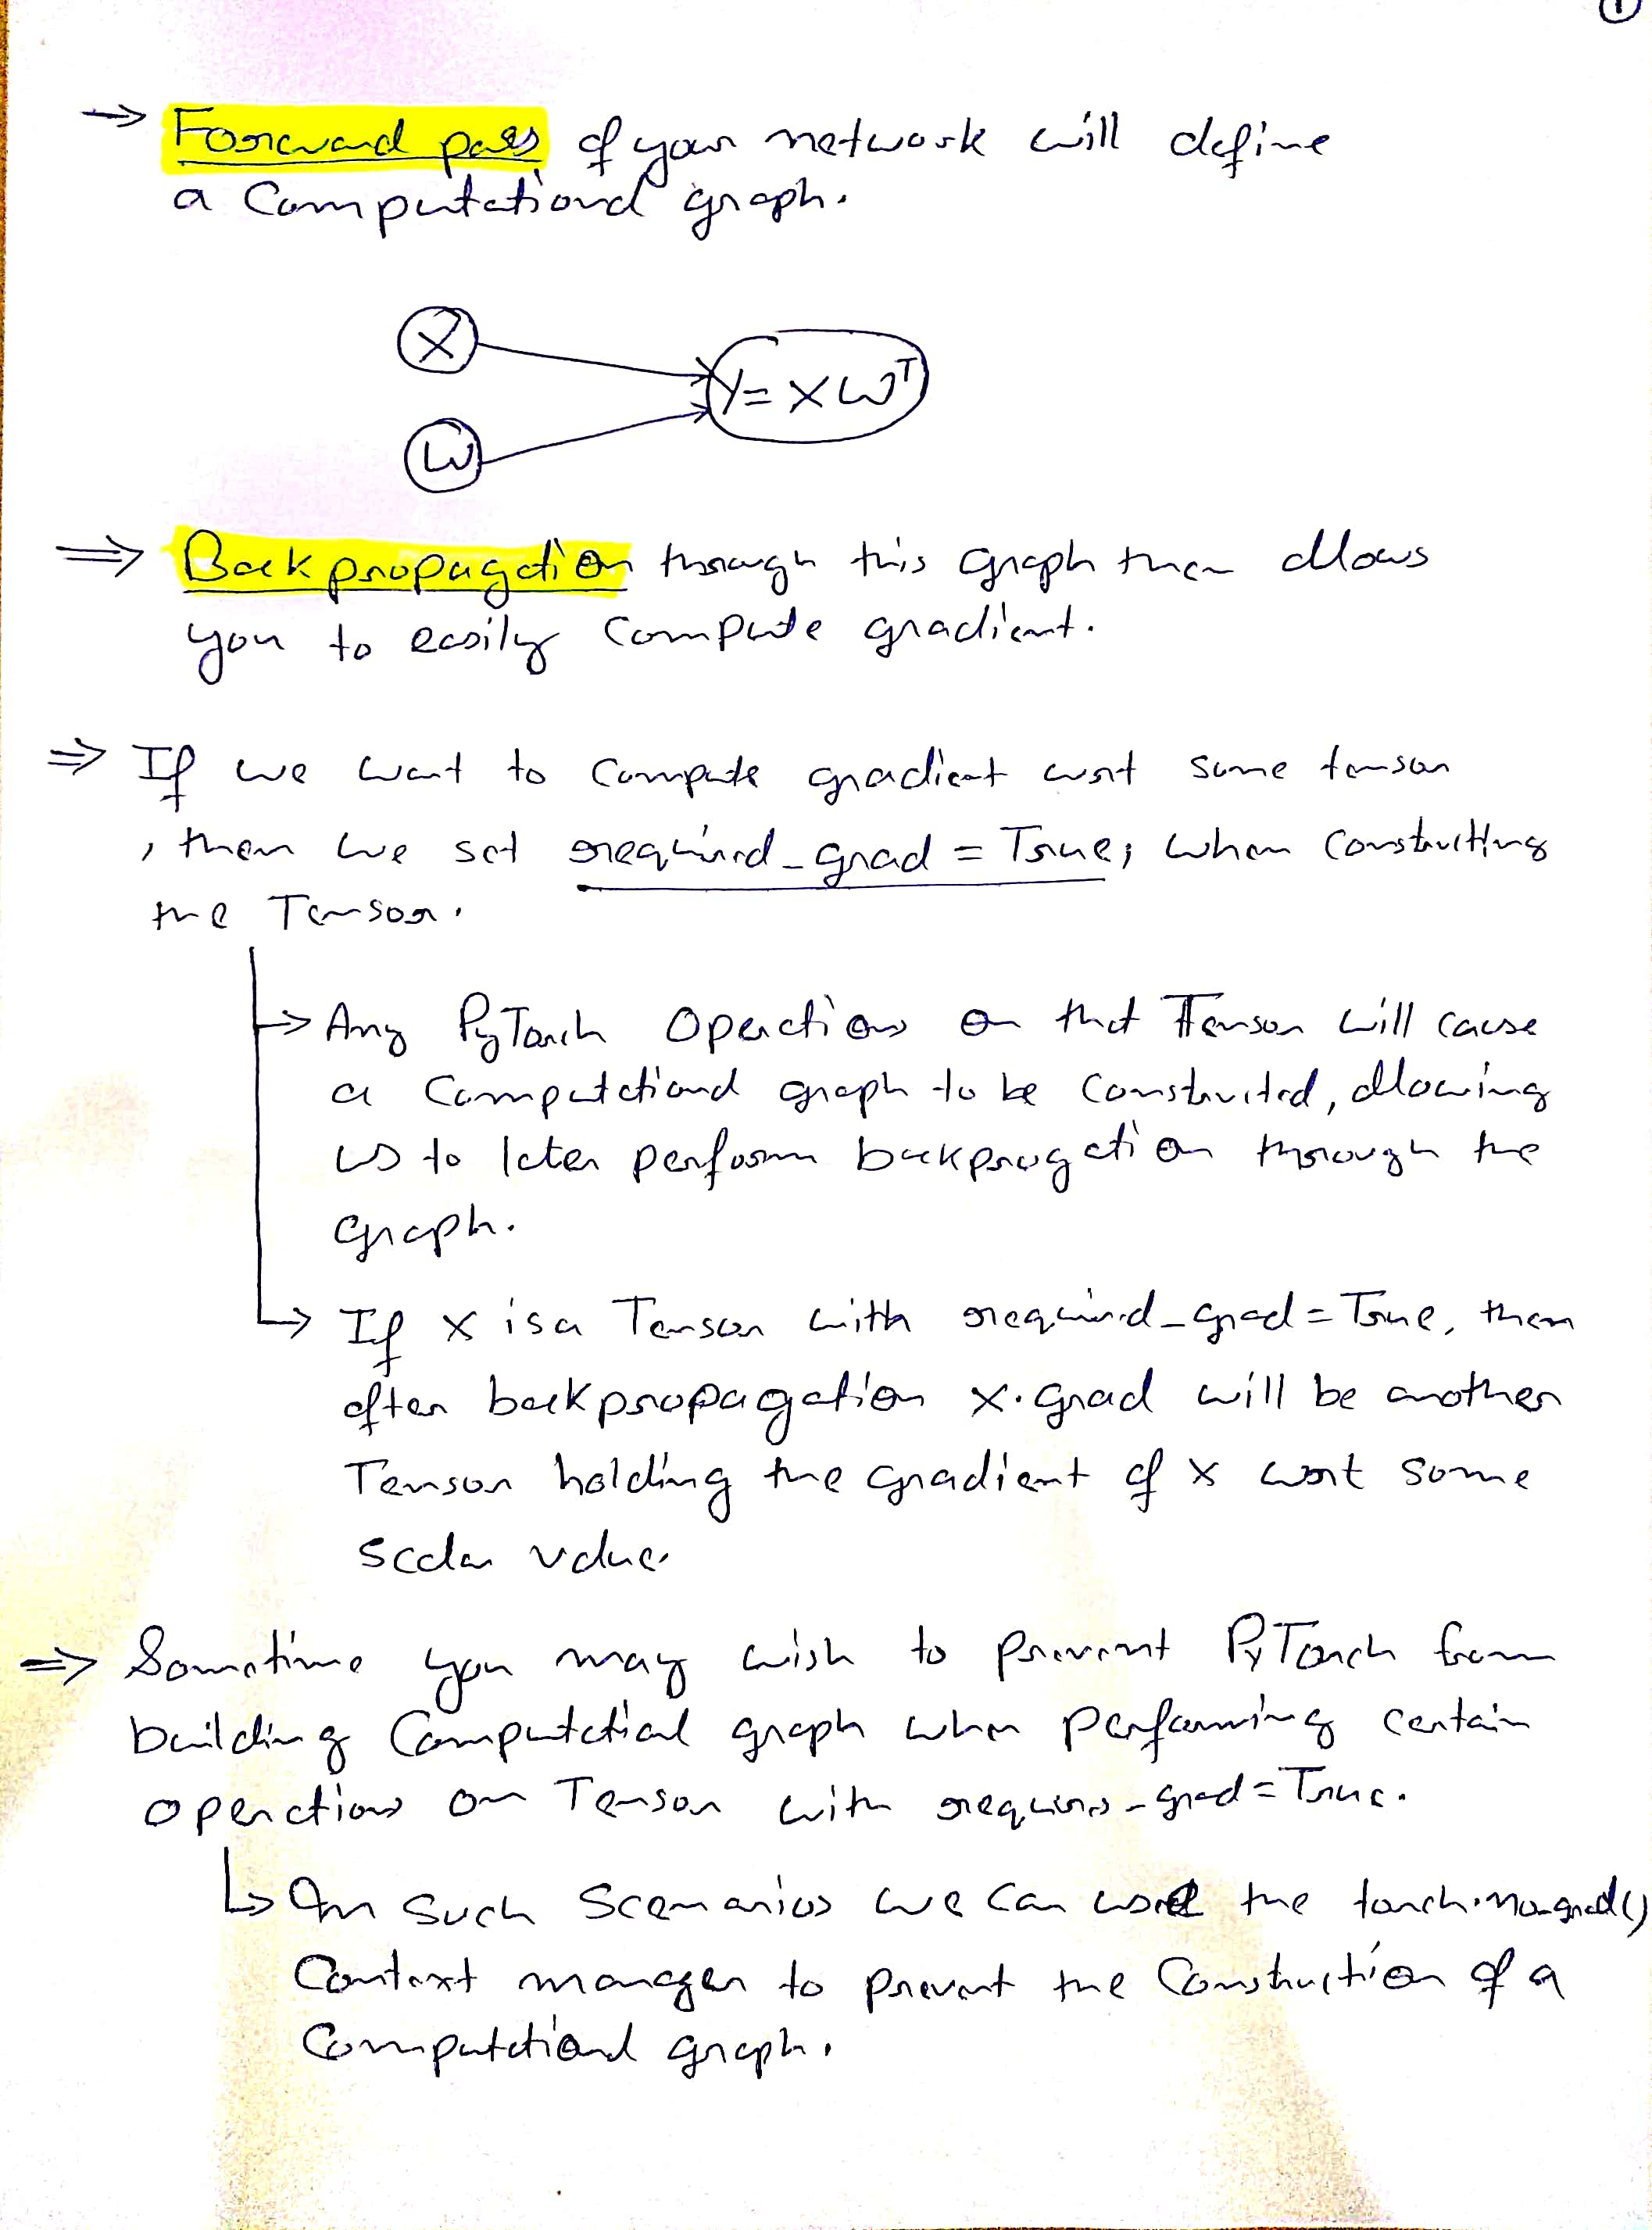 1
→ Forward pass of your network will define
a Computational graph.
X
Y = XWᵀ
W
⇒ Backpropagation through this graph then allows
you to easily compute gradient.
⇒ If we want to compute gradient wrt some tensor
, then we set required_grad = True; when constructing
the Tensor.
→ Any PyTorch Operations on that Tensor will cause
a Computational graph to be constructed, allowing
us to later perform backprogation through the
graph.
↳ If x is a Tensor with required_grad = True, then
after backpropagation x.grad will be another
Tensor holding the gradient of x wrt some
Scalar value.
⇒ Sometime you may wish to prevent PyTorch from
building Computatial graph when performing certain
operations on Tensor with requires_grad = True.
↳ In such scenarios we can use the torch.no_grad()
Context manager to prevent the Construction of a
Computational graph.